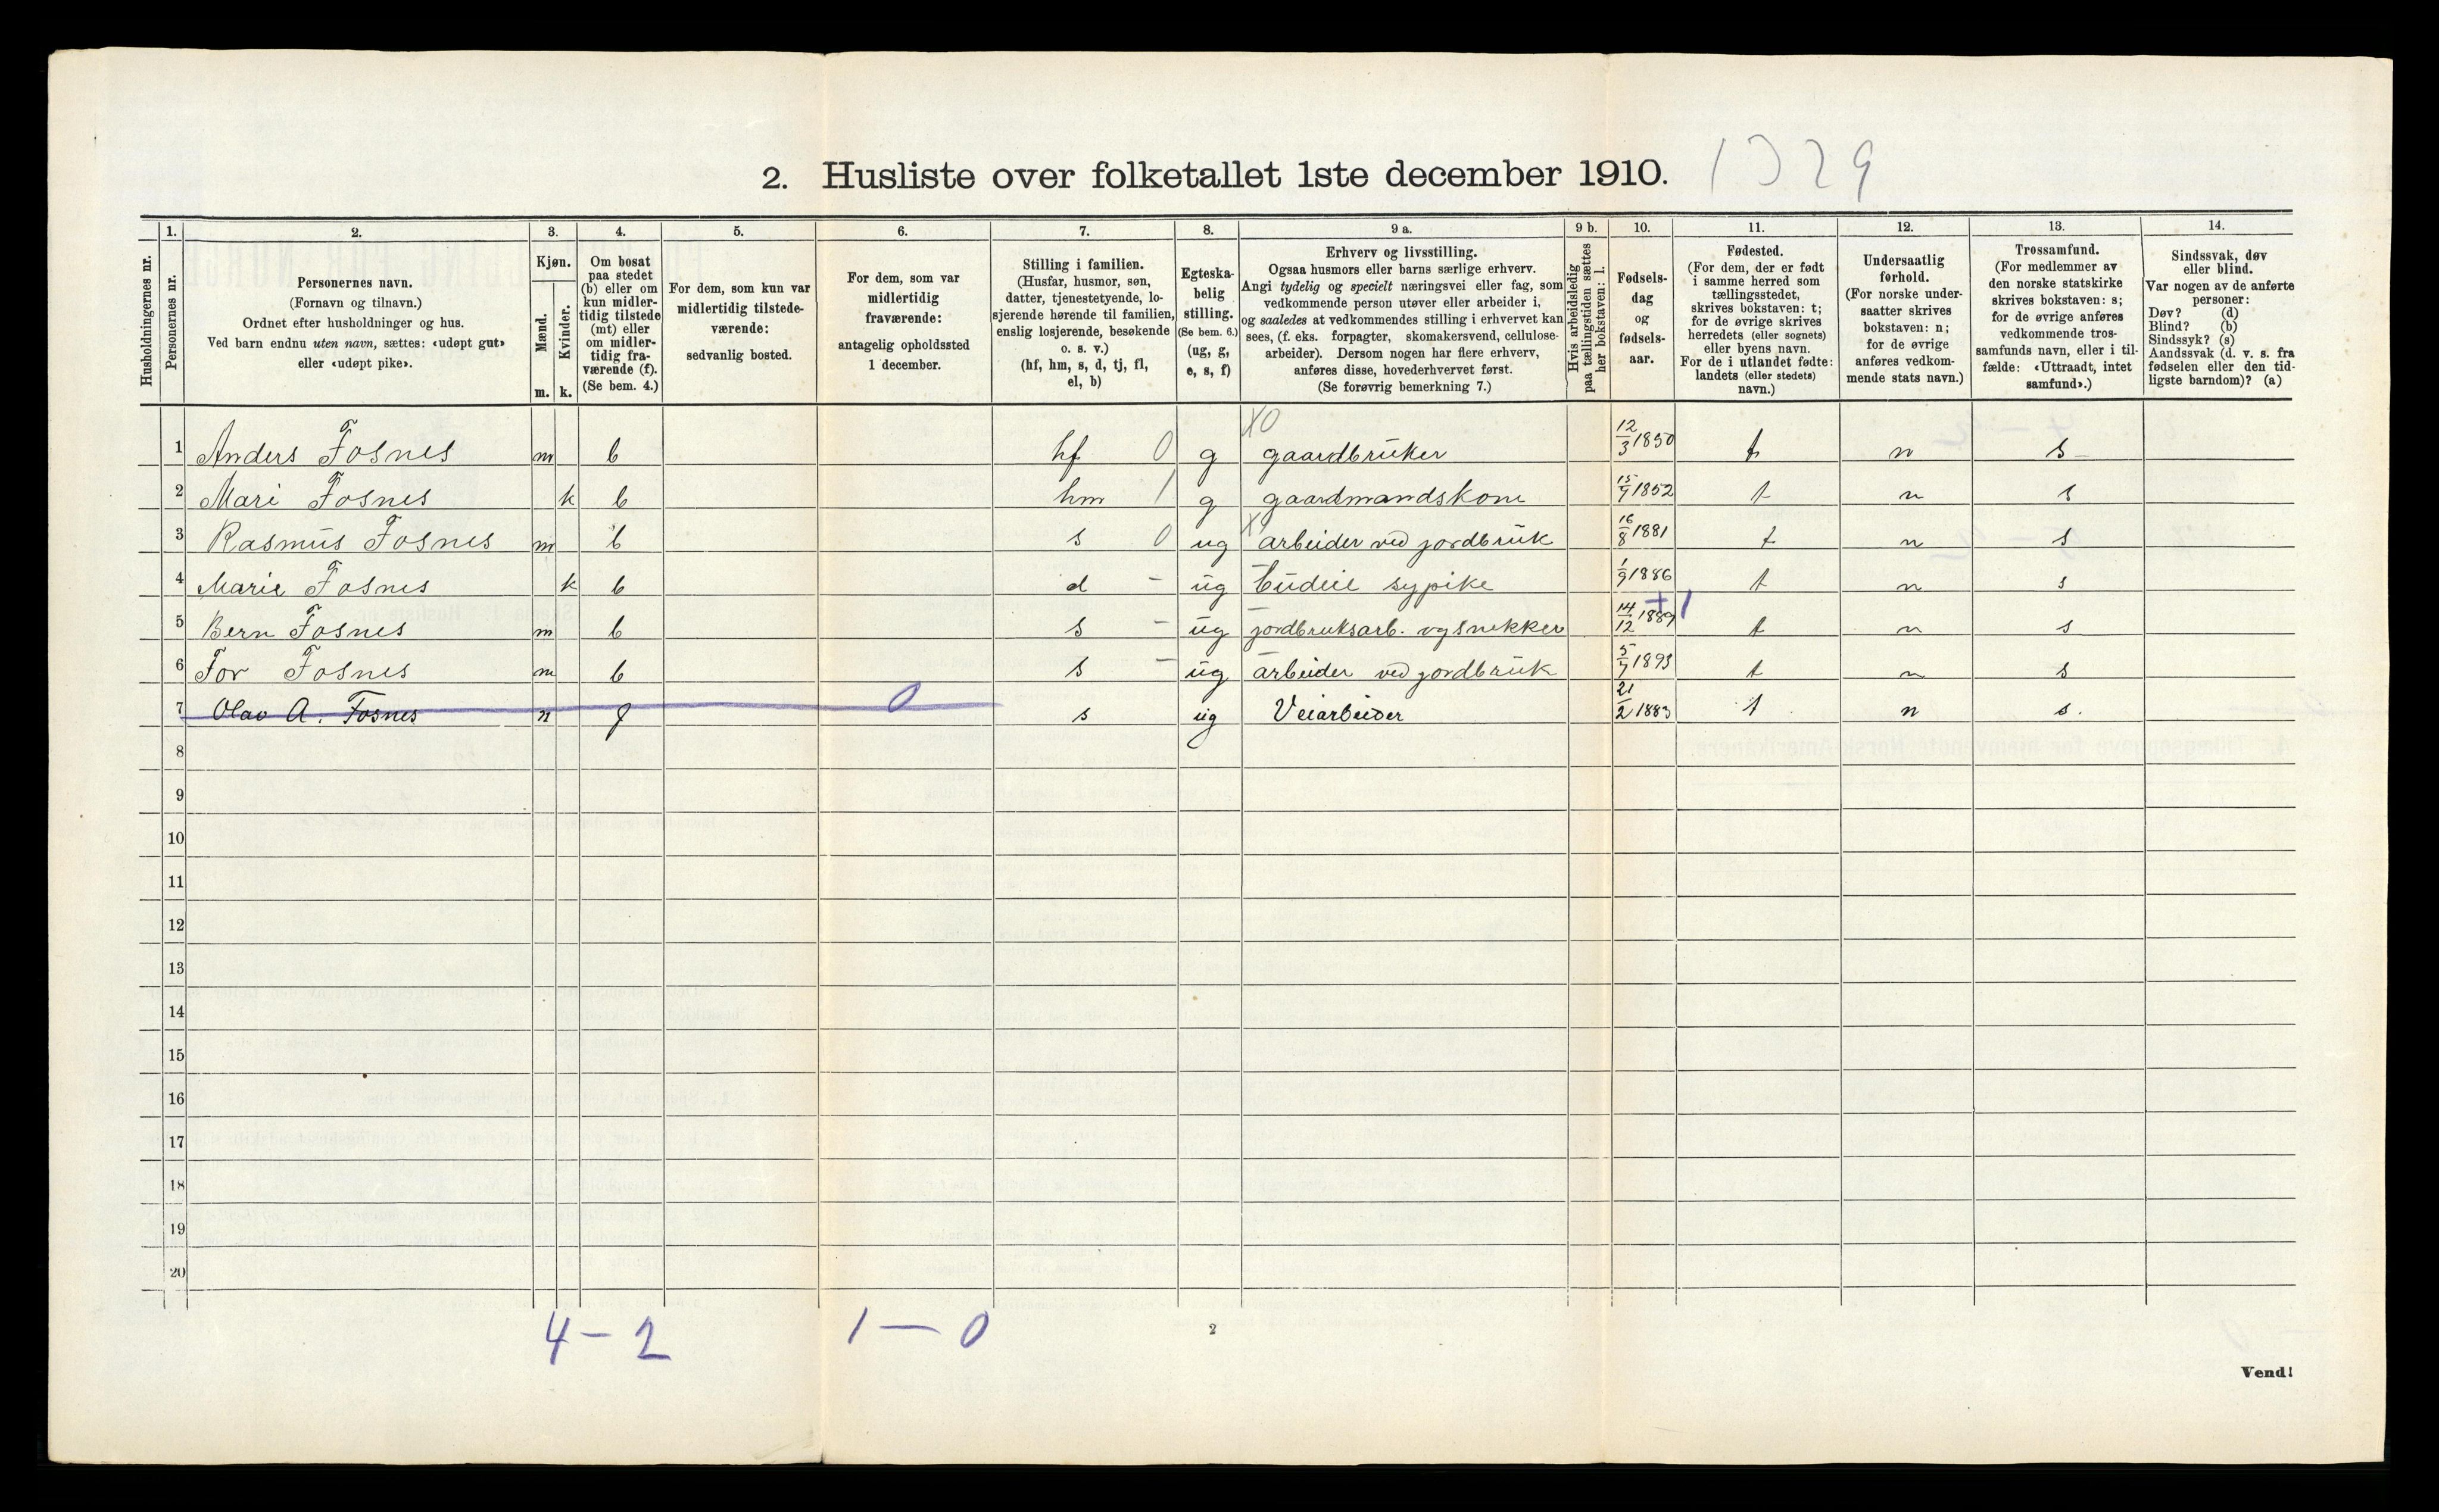 2. Husliste over folketallet 1ste december 1910. 1329
Husholdningernes nr.
1. Personernes nr.
2. Personernes navn.
(Fornavn og tilnavn.)
Ordnet efter husholdninger og hus.
Ved barn endnu uten navn, sættes: «udøpt gut»
eller «udøpt pike».
3. Kjøn.
Mænd. Kvinder.
m. k.
4. Om bosat
paa stedet
(b) eller om
kun midler-
tidig tilstede
(mt) eller
om midler-
tidig fra-
værende (f).
(Se bem. 4.)
5. For dem, som kun var
midlertidig tilstede-
værende:
sedvanlig bosted.
6. For dem, som var
midlertidig
fraværende:
antagelig opholdssted
1 december.
7. Stilling i familien.
(Husfar, husmor, søn,
datter, tjenestetyende, lo-
sjerende hørende til familien,
enslig losjerende, besøkende
o. s. v.)
(hf, hm, s, d, tj, fl,
el, b)
8. Egteska-
belig
stilling.
(Se bem. 6.)
(ug, g,
e, s, f)
9 a. Erhverv og livsstilling.
Ogsaa husmors eller barns særlige erhverv.
Angi tydelig og specielt næringsvei eller fag, som
vedkommende person utøver eller arbeider i,
og saaledes at vedkommendes stilling i erhvervet kan
sees, (f. eks. forpagter, skomakersvend, cellulose-
arbeider). Dersom nogen har flere erhverv,
anføres disse, hovederhvervet først.
(Se forøvrig bemerkning 7.)
9 b. Hvis arbeidsledig
paa tællingstiden sættes
her bokstaven: l.
10. Fødsels-
dag
og
fødsels-
aar.
11. Fødested.
(For dem, der er født
i samme herred som
tællingsstedet,
skrives bokstaven: t;
for de øvrige skrives
herredets (eller sognets)
eller byens navn.
For de i utlandet fødte:
landets (eller stedets)
navn.)
12. Undersaatlig
forhold.
(For norske under-
saatter skrives
bokstaven: n;
for de øvrige
anføres vedkom-
mende stats navn.)
13. Trossamfund.
(For medlemmer av
den norske statskirke
skrives bokstaven: s;
for de øvrige anføres
vedkommende tros-
samfunds navn, eller i til-
fælde: «Uttraadt, intet
samfund».)
14. Sindssvak, døv
eller blind.
Var nogen av de anførte
personer:
Døv? (d)
Blind? (b)
Sindssyk? (s)
Aandssvak (d. v. s. fra
fødselen eller den tid-
ligste barndom)? (a)
X0
1 Anders Fosnes m b hf 0 g gaardbruker 12/3 1850 t n s
2 Mari Fosnes k b hm 1 g gaardmandskone 15/9 1852 t n s
3 Rasmus Fosnes m b s 0 ug X arbeider ved jordbruk 16/8 1881 t n s
4 Marie Fosnes k b d - ug sypike 1/9 1886 t n s
5 Bern Fosnes m b s - ug jordbruksarb. og snekker 14/12 1889 t n s
6 Tor Fosnes m b s - ug arbeider ved jordbruk 5/7 1893 t n s
7 Olav A. Fosnes m f 0 s ug Veiarbeider 21/2 1883 t n s.
8
9
10
11
12
13
14
15
16
17
18
19
20
4 - 2 1 - 0
2
Vend!